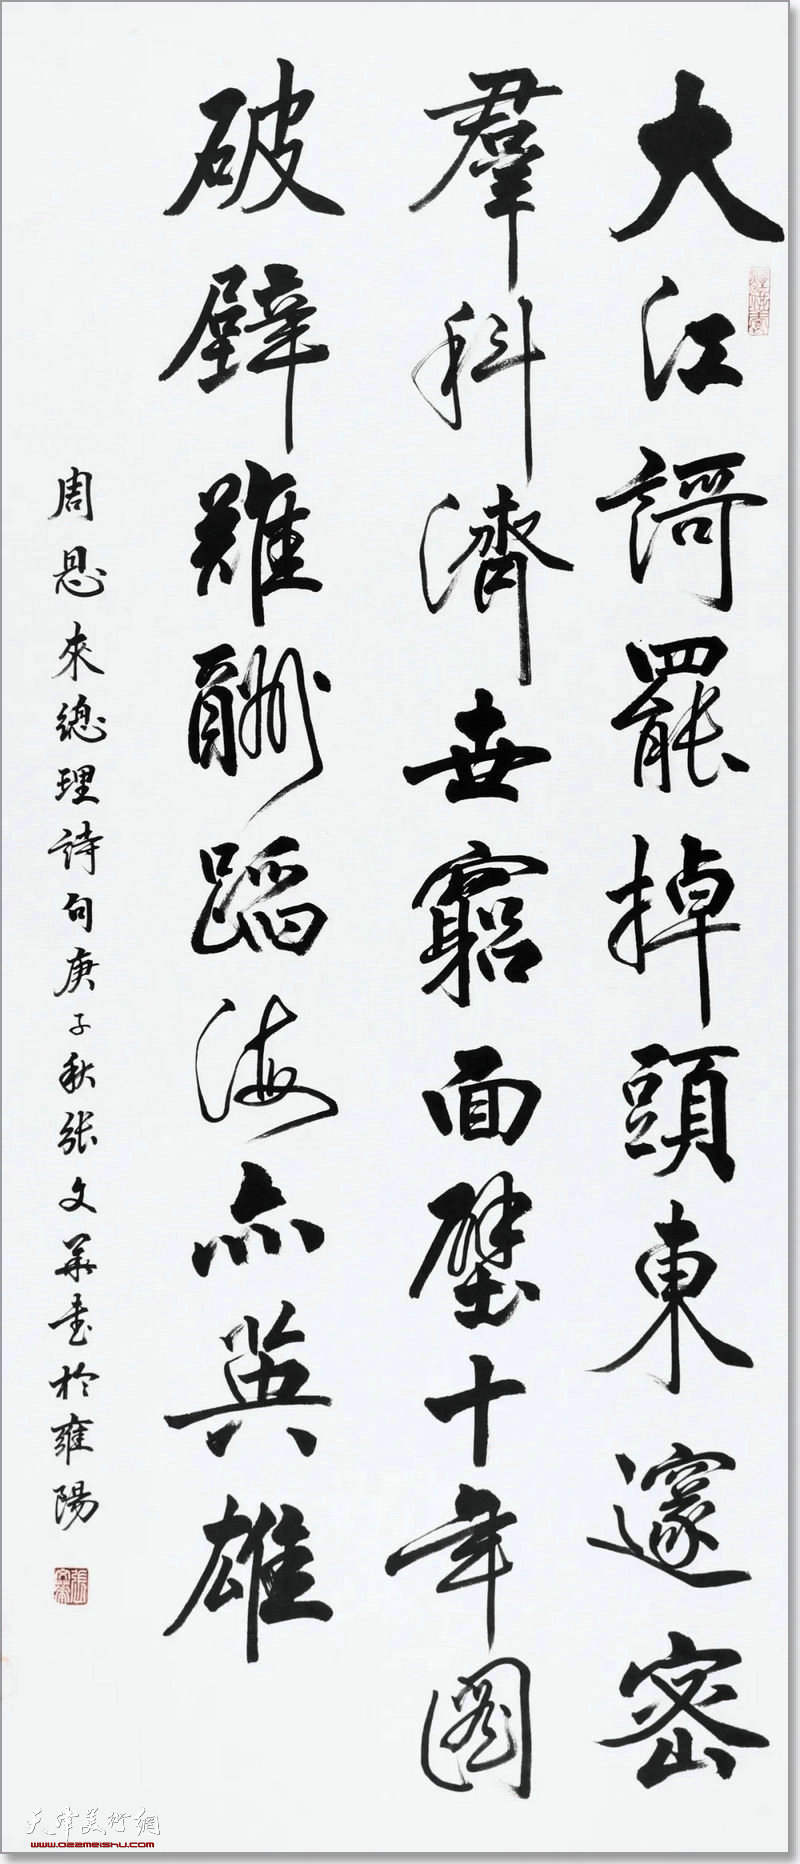 大江謌罷掉頭東邃密
羣科濟世竆面壁十年圖
破壁難酬蹈海亦英雄
周恩來總理詩句庚子秋張文華书於雍陽
張文華
天津美術網
www.022meishu.com